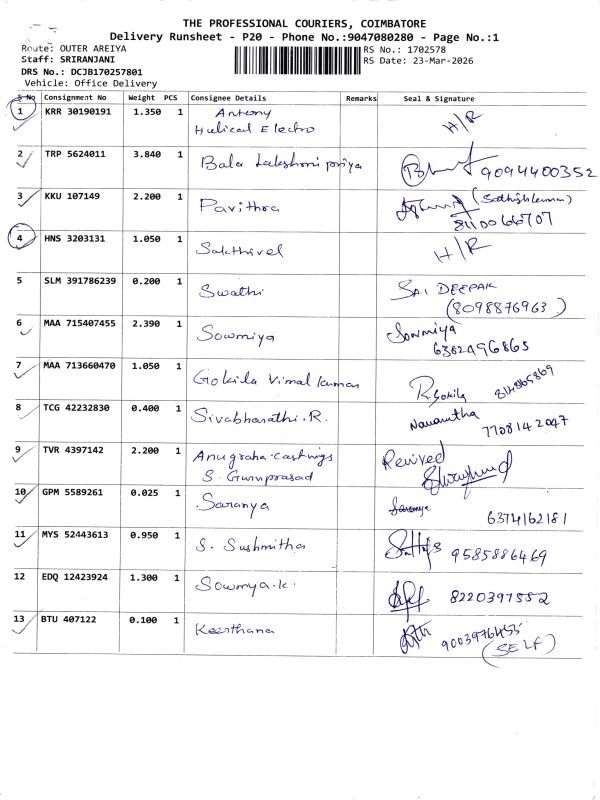 THE PROFESSIONAL COURIERS, COIMBATORE
Delivery Runsheet - P20 - Phone No.:9047080280 - Page No.:1
Route: OUTER AREIYA
RS No.: 1702578
Staff: SRIRANJANI
RS Date: 23-Mar-2026
DRS No.: DCJB170257801
Vehicle: Office Delivery
S No Consignment No Weight PCS Consignee Details Remarks Seal & Signature
1 KRR 30190191 1.350 1 Antony H/R
Hulical Electro
2 TRP 5624011 3.840 1 Bala Lakshmi priya 9094400352
3 KKU 107149 2.200 1 Pavithra (Sathishkumar)
8110066707
4 HNS 3203131 1.050 1 Sakthivel H/R
5 SLM 391786239 0.200 1 Swathi SAI DEEPAK
(8098876963)
6 MAA 715407455 2.390 1 Sowmiya Sowmiya
6382496865
7 MAA 713660470 1.050 1 Gokila Vimal Kumar R. Gokila
8 TCG 42232830 0.400 1 Sivabharathi.R.
7708142047
9 TVR 4397142 2.200 1 Anugraha castings
S. Guruprasad
10 GPM 5589261 0.025 1 Saranya Saranya
6374162181
11 MYS 52443613 0.950 1 S. Sushmitha 9585886469
12 EDQ 12423924 1.300 1 Sowmya.k. 8220397552
13 BTU 407122 0.100 1 Keerthana
(SELF)